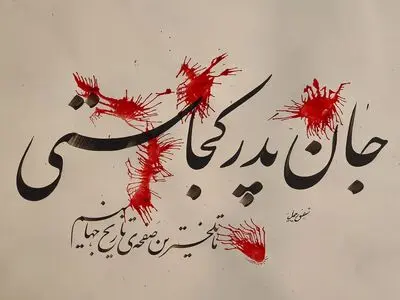 جان پدر کجاستی
ما تلخ‌ترین صفحه‌ی تاریخ جهانیم